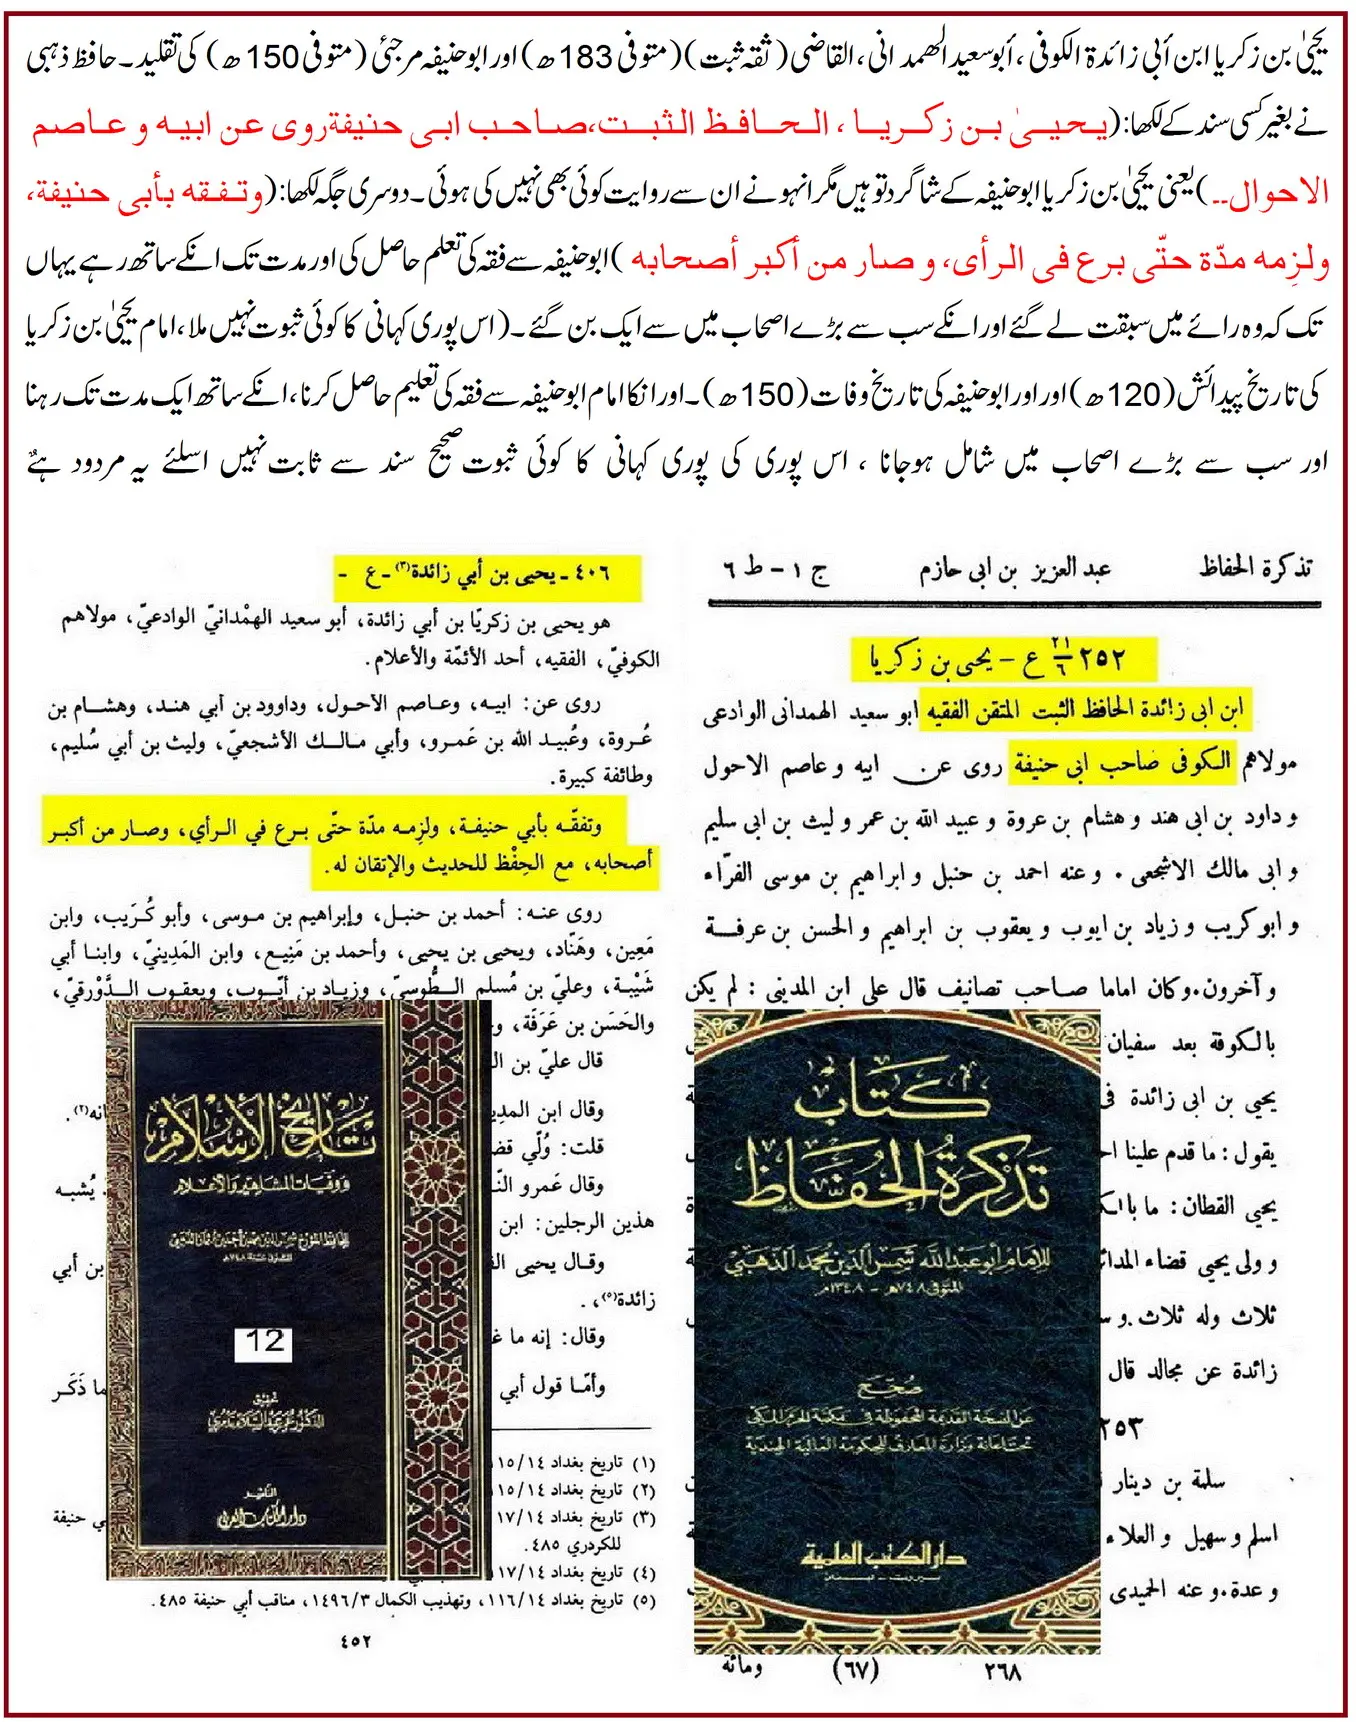 یحییٰ بن زکریا ابن أبی زائدة الکوفی ، أبو سعید الھمدانی، القاضی (ثقہ ثبت) (متوفی 183ھ) اور ابو حنیفہ مرجئی (متوفی 150ھ) کی تقلید۔ حافظ ذہبی
نے بغیر کسی سند کے لکھا: (یـحیـیٰ بـن زکـریـا ، الـحـافـظ الثبـت،صـاحـب ابـی حنیفةروی عن ابیـه و عـاصم
الاحوال۔۔) یعنی یحییٰ بن زکریا ابو حنیفہ کے شاگرد تو ہیں مگر انہو نے ان سے روایت کوئی بھی نہیں کی ہوئی۔ دوسری جگہ لکھا: (وتـفـقه بـأبی حنیفة،
ولزِمه مدّة حتّی برع فی الرأی، و صار من أکبر أصحابه ) ابو حنیفہ سے فقہ کی تعلم حاصل کی اور مدت تک انکے ساتھ رہے یہاں
تک کہ وہ رائے میں سبقت لے گئے اور انکے سب سے بڑے اصحاب میں سے ایک بن گئے۔ (اس پوری کہانی کا کوئی ثبوت نہیں ملا، امام یحییٰ بن زکریا
کی تاریخ پیدائش (120ھ) اور اور ابو حنیفہ کی تاریخ وفات (150ھ)۔ اور انکا امام ابو حنیفہ سے فقہ کی تعلیم حاصل کرنا، انکے ساتھ ایک مدت تک رہنا
اور سب سے بڑے اصحاب میں شامل ہوجانا ، اس پوری کی پوری کہانی کا کوئی ثبوت صحیح سند سے ثابت نہیں اسلئے یہ مردود ہے
تذكرة الحفاظ عبد العزيز بن ابى حازم ج ١ - ط ٦
٢٥٢ ٢١/٦ ع - يحيى بن زكريا
ابن ابى زائدة الحافظ الثبت المتقن الفقيه ابو سعيد الهمدانى الوادعى
مولاهم الكوفى صاحب ابى حنيفة روى عن ابيه و عاصم الاحول
و داود بن ابى هند و هشام بن عروة و عبيد الله بن عمر و ليث بن ابى سليم
و ابى مالك الاشجعى . و عنه احمد بن حنبل و ابراهيم بن موسى الفرّاء
و ابو كريب و زياد بن ايوب و يعقوب بن ابراهيم و الحسن بن عرفة
و آخرون.وكان اماما صاحب تصانيف قال على ابن المدينى : لم يكن
بالكوفة بعد سفيان
يحيى بن ابى زائدة فى
يقول : ما قدم علينا
يحيى القطان : ما
و ولى يحيى قضاء المدا
ثلاث وله ثلاث و
زائدة عن مجالد قال
٢٥٣
سلمة بن دينار
اسلم و سهيل و العلاء
و عدة.و عنه الحميدى
ومائة (٦٧) ٢٦٨
كتاب
تذكرة الحفاظ
للإمام أبو عبد الله شمس الدين محمد الذهبي
المتوفى ٧٤٨هـ - ١٣٤٨م
صحح
عن النسخة القديمة المحفوظة في مكتبة الحرم المكي
تحت إعانة وزارة المعارف للحكومة العالية الهندية
دار الكتب العلمية
بيروت - لبنان
٤٠٦ - يحيى بن أبي زائدة(٣) - ع -
هو يحيى بن زكريّا بن أبي زائدة، أبو سعيد الهمْدانيّ الوادعيّ، مولاهم
الكوفيّ، الفقيه، أحد الأئمّة والأعلام.
روى عن: ابيه، وعاصم الأحول، وداوود بن أبي هند، وهشام بن
عُروة، وعُبيد الله بن عَمرو، وأبي مالك الأشجعيّ، وليث بن أبي سُليم،
وطائفة كبيرة.
وتفقّه بأبي حنيفة، ولزِمه مدّة حتّى برع في الرأي، وصار من أكبر
أصحابه، مع الحِفْظ للحديث والإتقان له.
روى عنه: أحمد بن حنبل، وإبراهيم بن موسى، وأبو كُرَيب، وابن
مَعِين، وهَنّاد، ويحيى بن يحيى، وأحمد بن مَنِيع، وابن المَدِينيّ، وابنا أبي
شَيْبة، وعليّ بن مُسلم الطُّوسيّ، وزياد بن أيّوب، ويعقوب الدَّوْرقيّ،
والحَسَن بن عَرَفَة،
قال عليّ بن
وقال ابن المدِ
قلت: وُلّي
وقال عَمرو ، يُشبه
هذين الرجلين: ابن
وقال يحيى بن أبي
زائدة(٥)، .
وقال: إنه ما
وأمّا قول أبي ما ذَكَر
(١) تاريخ بغداد ١١٥/١٤
(٢) تاريخ بغداد ١١٥/١٤
(٣) تاريخ بغداد ١١٧/١٤ حنيفة
للكردري ٤٨٥.
(٤) تاريخ بغداد ١١٧/١٤
(٥) تاريخ بغداد ١١٦/١٤، وتهذيب الكمال ١٤٩٦/٣، مناقب أبي حنيفة ٤٨٥.
٤٥٢
تاريخ الإسلام
ووفيات المشاهير والأعلام
12
تحقيق
الدكتور عمر عبد السلام تدمري
الناشر
دار الكتاب العربي